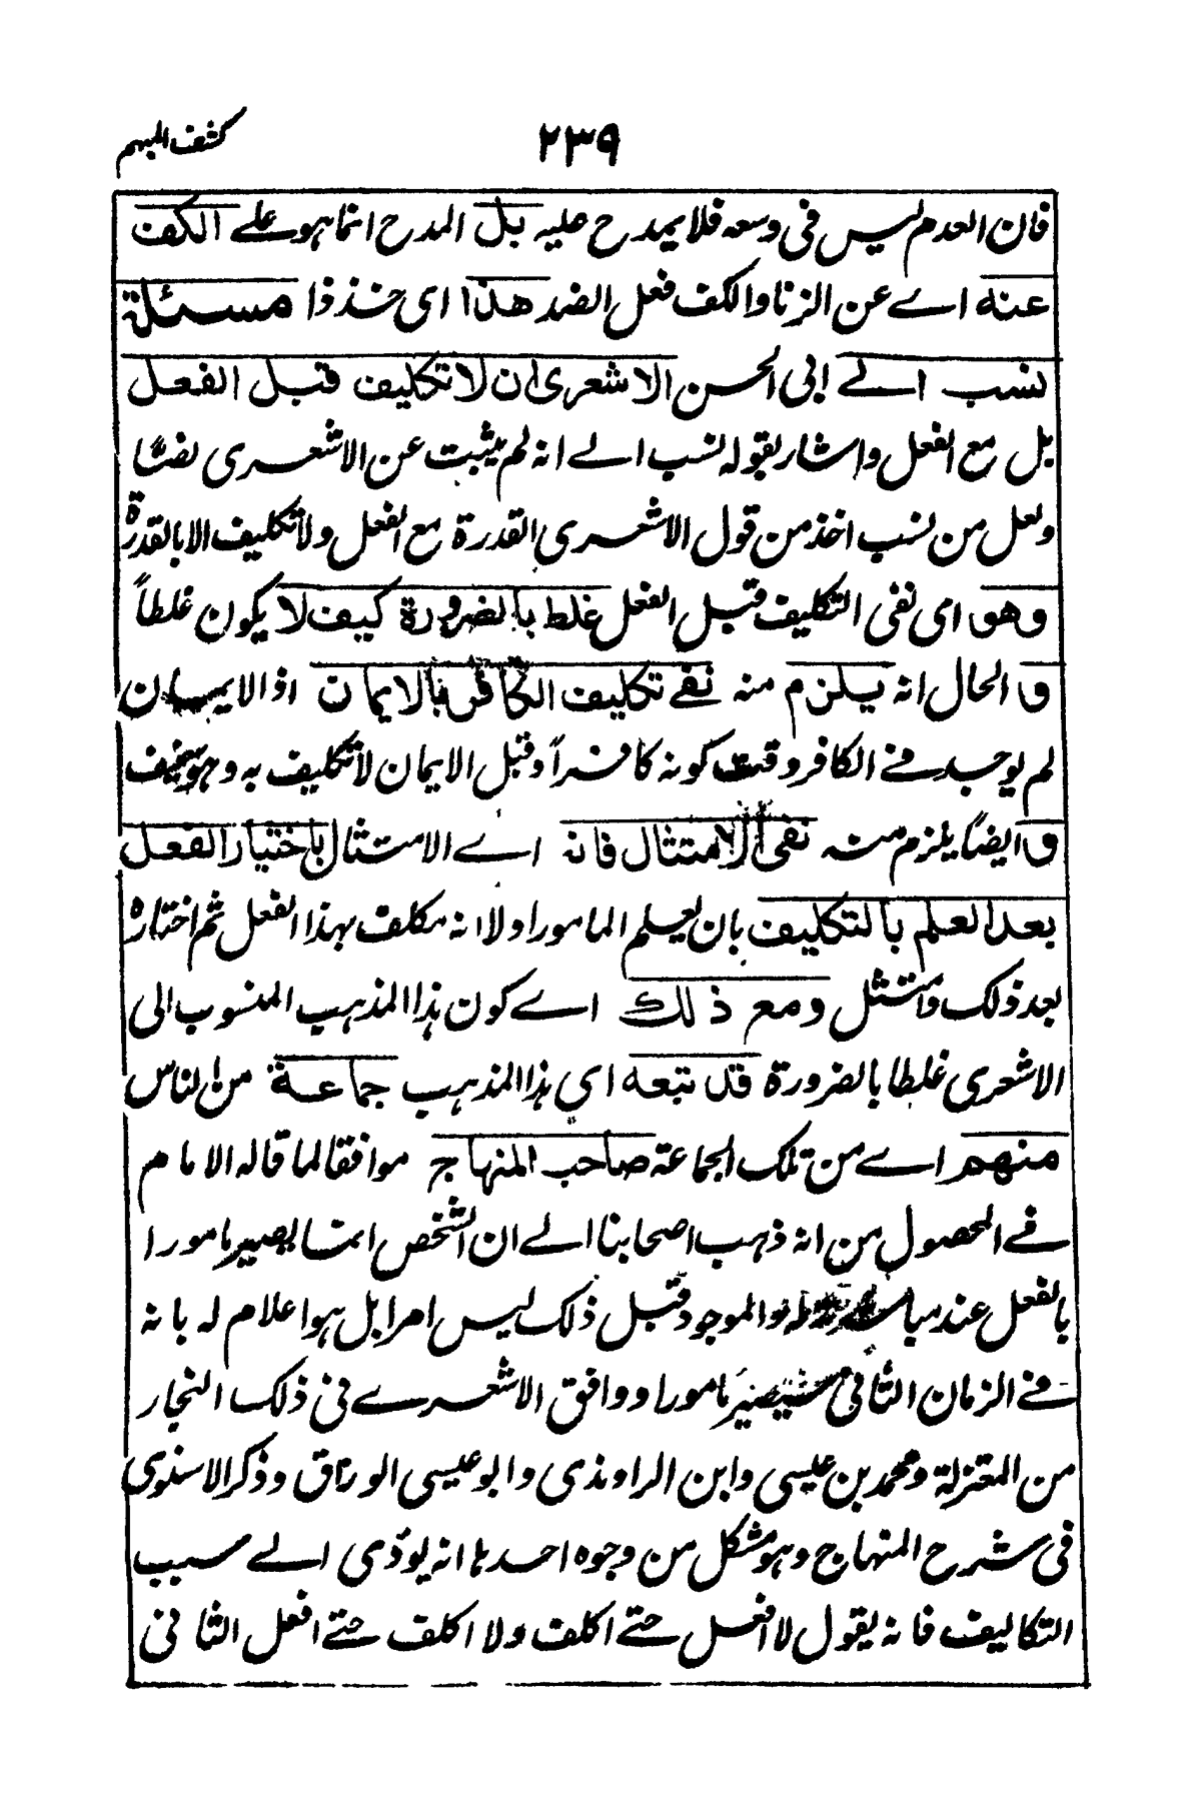 كشف المبهم
٢٣٩
فان العدم ليس فى وسعه فلا يمدح عليه بل المدح انما هو على الكف
عنه اے عن الزنا والكف فعل الضد هذا اى خذ ذا مسئلة
نسب الے ابى الحسن الاشعرى ان لا تكليف قبل الفعل
بل مع الفعل واشار بقوله نسب الے انه لم يثبت عن الاشعرى نصًا
ولعل من نسب اخذ من قول الاشعرى القدرة مع الفعل ولا تكليف الا بالقدرة
وهو اى نفى التكليف قبل الفعل غلط بالضرورة كيف لا يكون غلطاً
و الحال انه يلزم منه نفے تكليف الكافر بالايمان اذ الايمان
لم يوجد فے الكافر وقت كونه كافراً وقبل الايمان لا تكليف به وهو سخيف
و ايضًا يلزم منه نفى الامتثال فانه اے الامتثال باختيار الفعل
بعد العلم بالتكليف بان يعلم المامور اولا انه مكلف بهذا الفعل ثم اختاره
بعد ذلك وامتثل ومع ذلك اے كون هذا المذهب المنسوب الى
الاشعرى غلطا بالضرورة قد تبعه اى هذا المذهب جماعة من الناس
منهم اے من تلك الجماعة صاحب المنهاج موافقا لما قاله الامام
فے المحصول من انه ذهب اصحابنا الے ان الشخص انما يصير مامورا
بالفعل عند والموجود قبل ذلك ليس امرا بل هو اعلام له بانه
فے الزمان الثانى سيصير مامورا ووافق الاشعرے فى ذلك النجار
من المعتزلة ومحمد بن عيسى وابن الراوندى وابو عيسى الوراق وذكر الاسنوى
فى شرح المنهاج وهو مشكل من وجوه احدها انه يؤدى الے سبب
التكاليف فانه يقول لا افعل حتے اكلف ولا اكلف حتے افعل الثانى